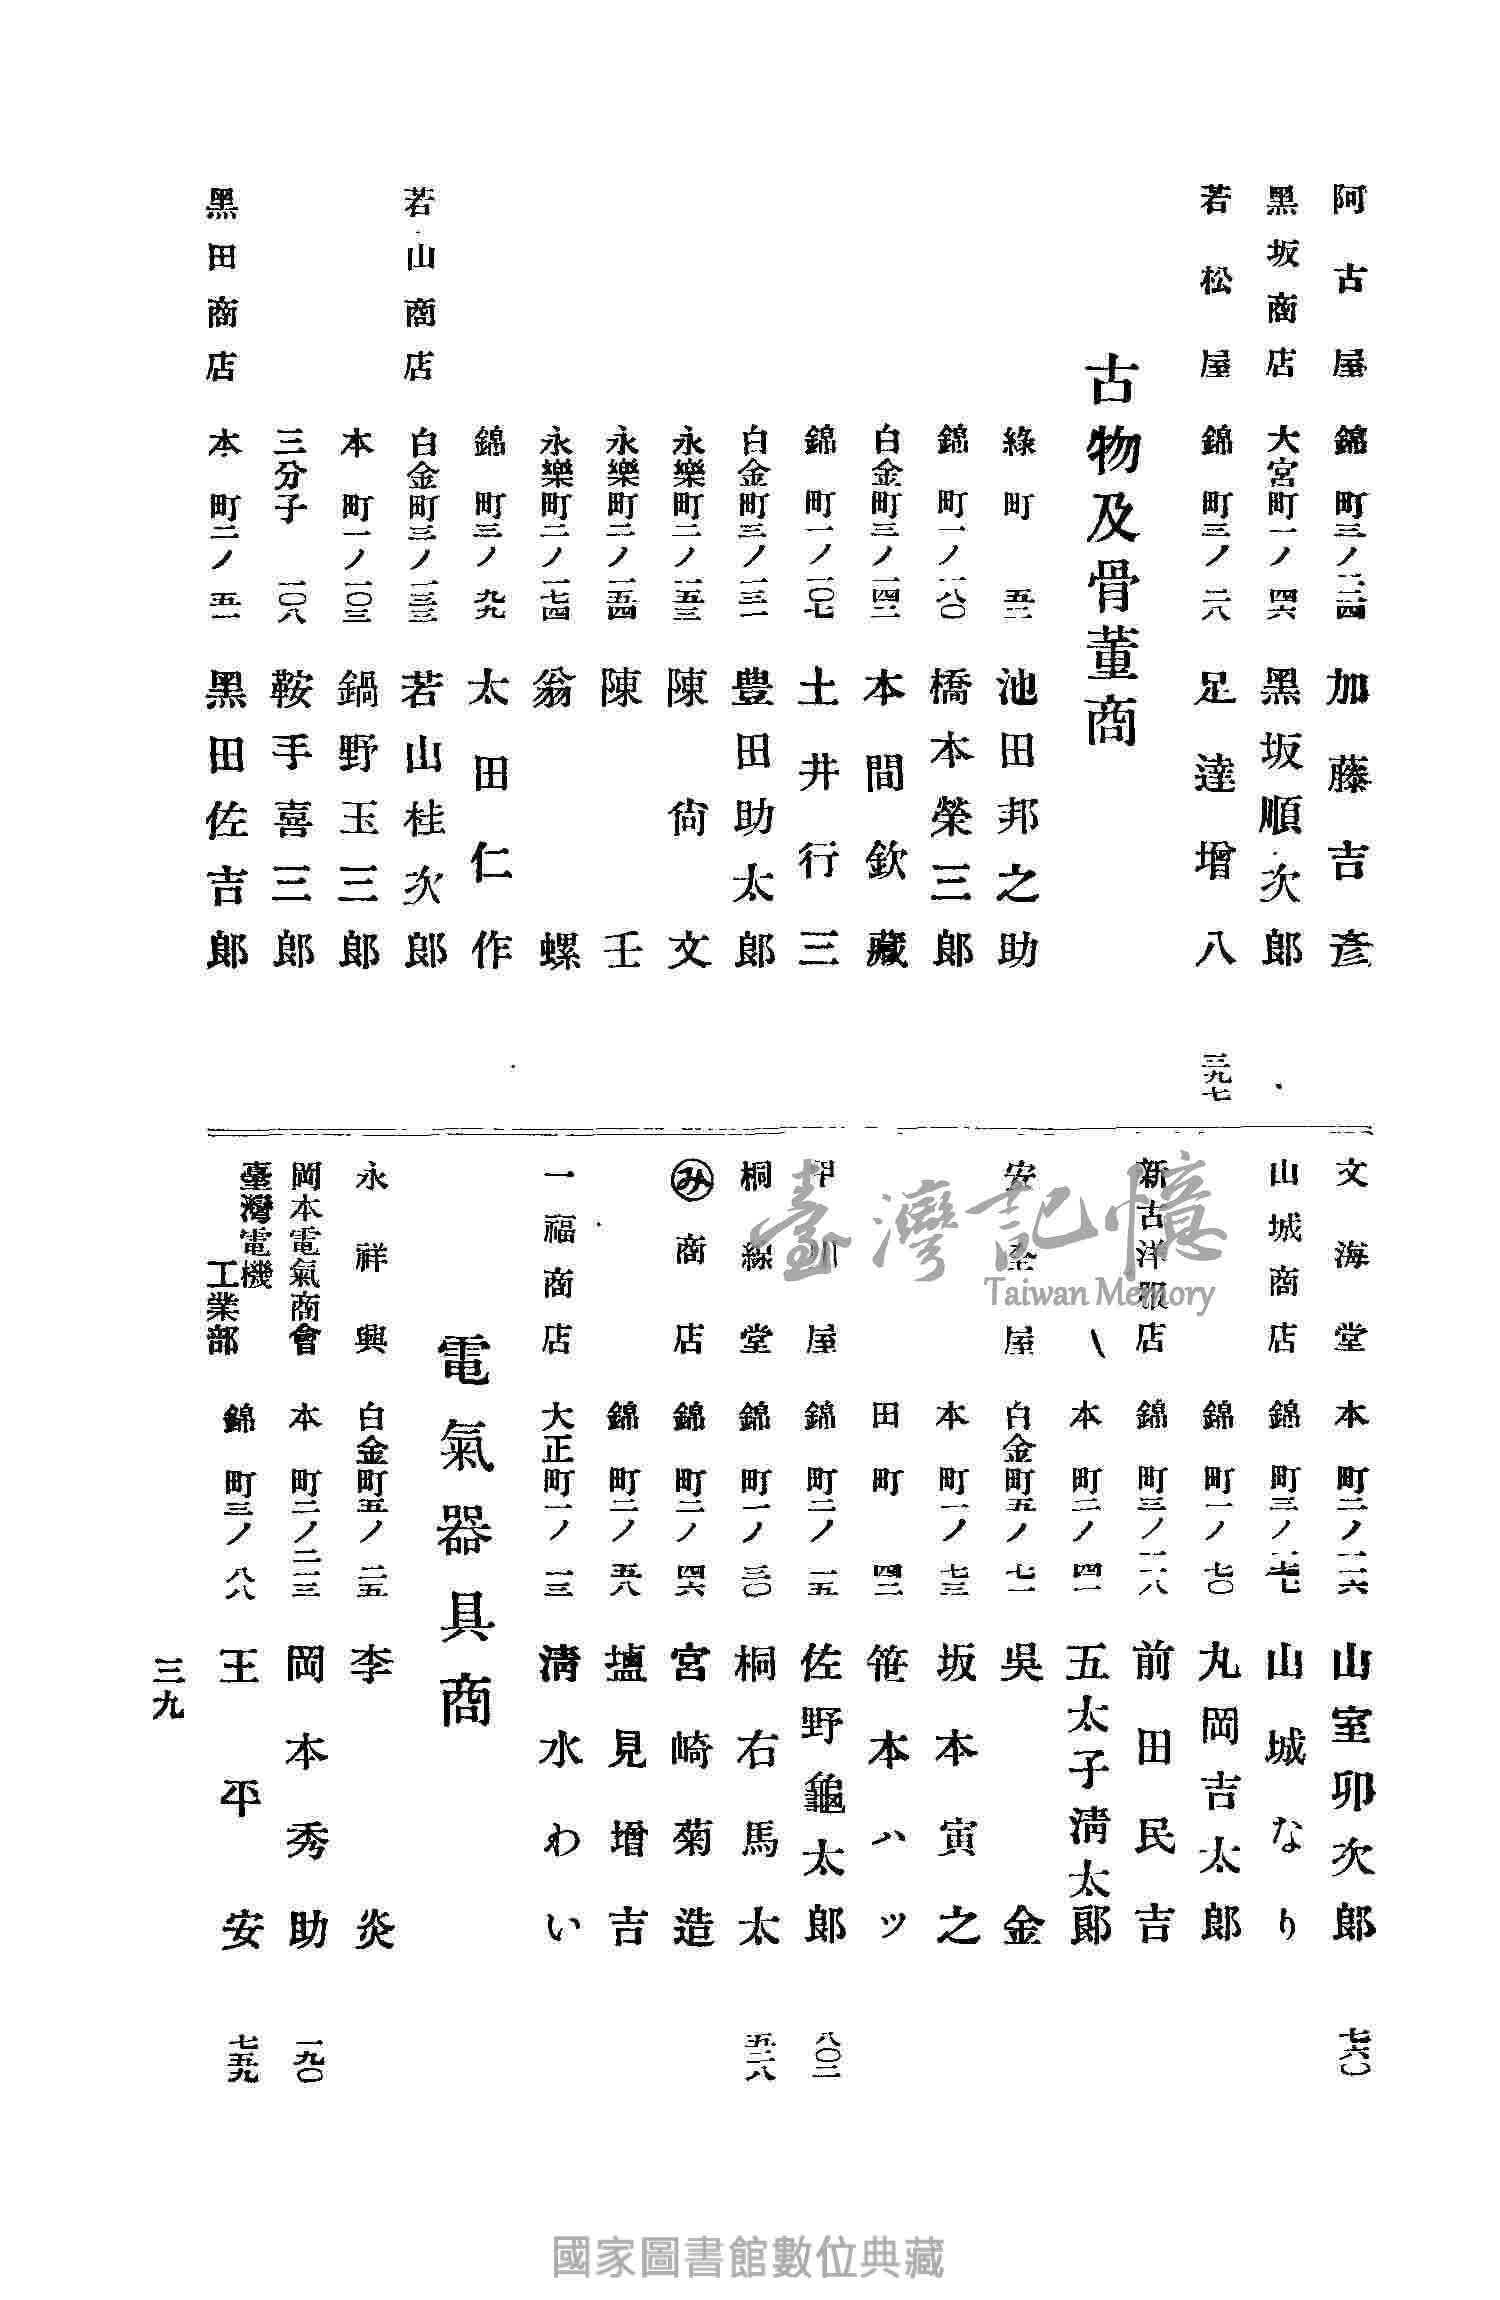 阿古屋 錦町三ノ一二四 加藤吉彥
黑坂商店 大宮町一ノ四六 黑坂順次郎
若松屋 錦町三ノ二八 足達增八 三九七
古物及骨董商
綠町 五二 池田邦之助
錦町一ノ一八〇 橋本榮三郎
白金町三ノ一四二 本間欽藏
錦町一ノ一〇七 土井行三
白金町三ノ一三一 豊田助太郎
永樂町二ノ一五三 陳尙文
永樂町二ノ一五四 陳壬
永樂町二ノ一七四 翁螺
錦町三ノ九九 太田仁作
若山商店 白金町三ノ一三三 若山桂次郎
本町一ノ一〇三 鍋野玉三郎
三分子 一〇八 鞍手喜三郎
黑田商店 本町二ノ五一 黑田佐吉郎
文海堂 本町二ノ一一六 山室卯次郎 七六〇
山城商店 錦町三ノ 山城なり
錦町一ノ七〇 丸岡吉太郎
新古洋服店 錦町三ノ一一八 前田民吉
本町二ノ四一 五太子淸太郞
安全屋 白金町五ノ七一 吳金
本町一ノ七三 坂本寅之
田町 四二 笹本ハツ
甲州屋 錦町二ノ一五 佐野龜太郎 八〇二
桐線堂 錦町一ノ三〇 桐右馬太 五二八
み商店 錦町二ノ四六 宮崎菊造
錦町二ノ五八 塩見增吉
一福商店 大正町一ノ一三 淸水わい
電氣器具商
永祥興 白金町五ノ二五 李炎
岡本電氣商會 本町二ノ二一三 岡本秀助 一九〇
臺灣電機工業部 錦町三ノ八八 王平安 七五九
三九
臺灣記憶
Taiwan Memory
國家圖書館數位典藏